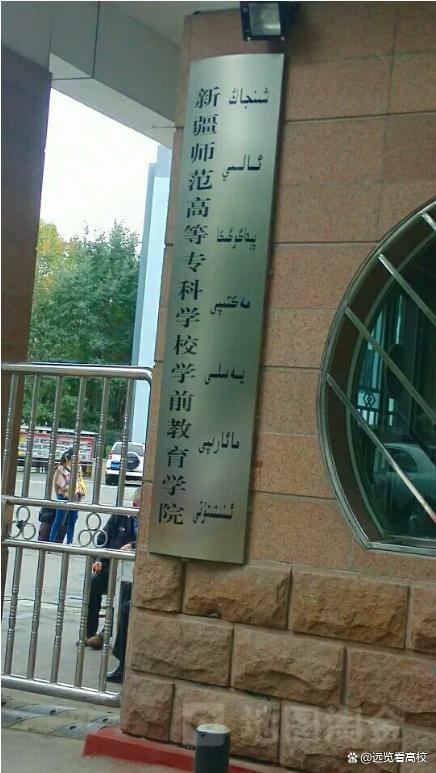 新疆师范高等专科学校学前教育学院
شىنجاڭ
ئالىي
پېداگوگىكا
مەكتىپى
يەسلى
مائارىپى
ئىنستىتۇتى
远览看高校